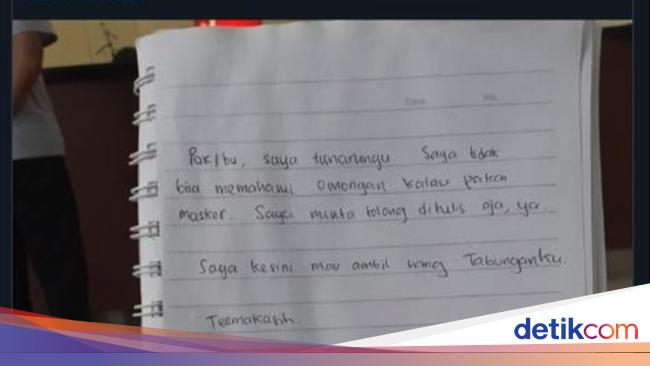 Pak/bu, saya tunarungu. Saya tidak
bisa memahami omongan kalau pakai
masker. Saya minta tolong ditulis aja, ya.
Saya kesini mau ambil uang Tabunganku.
Termakasih.
detikcom